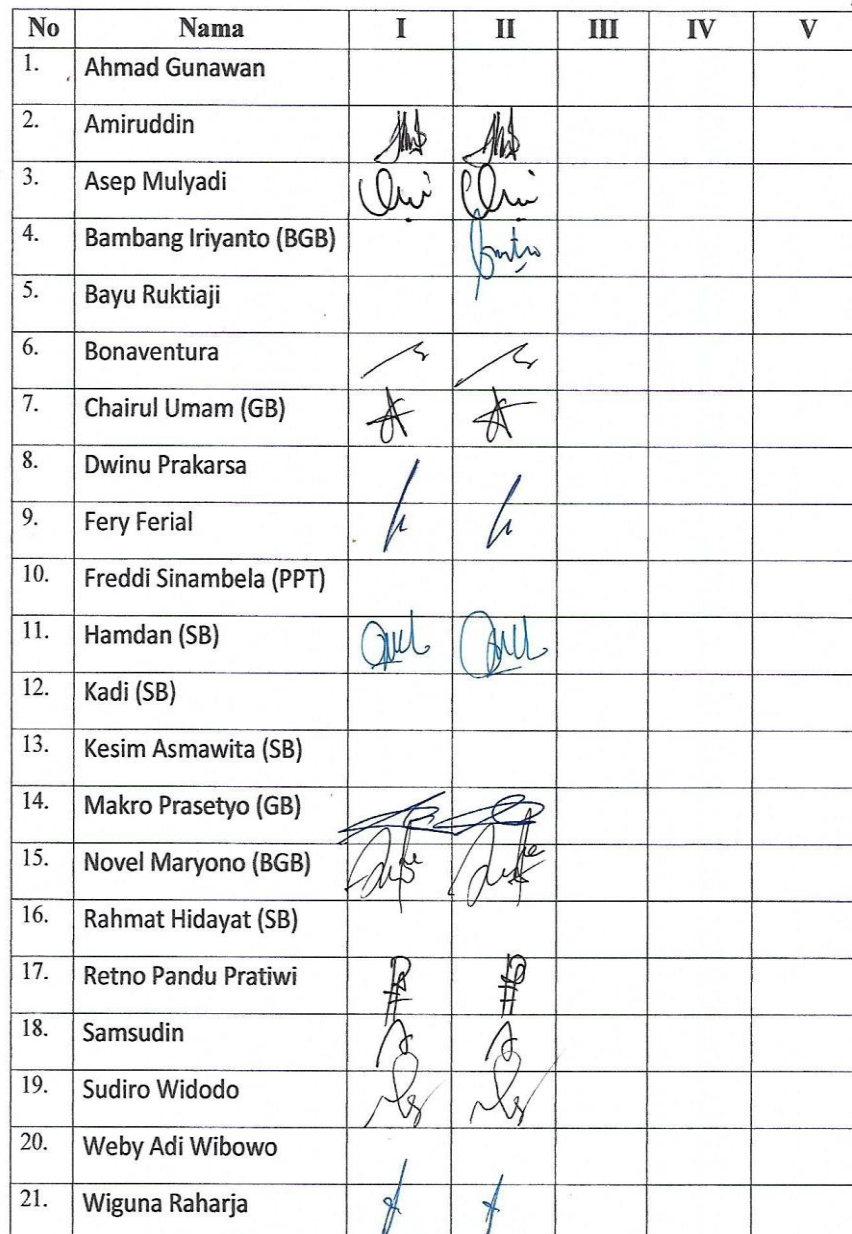 No Nama I II III IV V
1. Ahmad Gunawan
2. Amiruddin
3. Asep Mulyadi
4. Bambang Iriyanto (BGB)
5. Bayu Ruktiaji
6. Bonaventura
7. Chairul Umam (GB)
8. Dwinu Prakarsa
9. Fery Ferial
10. Freddi Sinambela (PPT)
11. Hamdan (SB)
12. Kadi (SB)
13. Kesim Asmawita (SB)
14. Makro Prasetyo (GB)
15. Novel Maryono (BGB)
16. Rahmat Hidayat (SB)
17. Retno Pandu Pratiwi
18. Samsudin
19. Sudiro Widodo
20. Weby Adi Wibowo
21. Wiguna Raharja